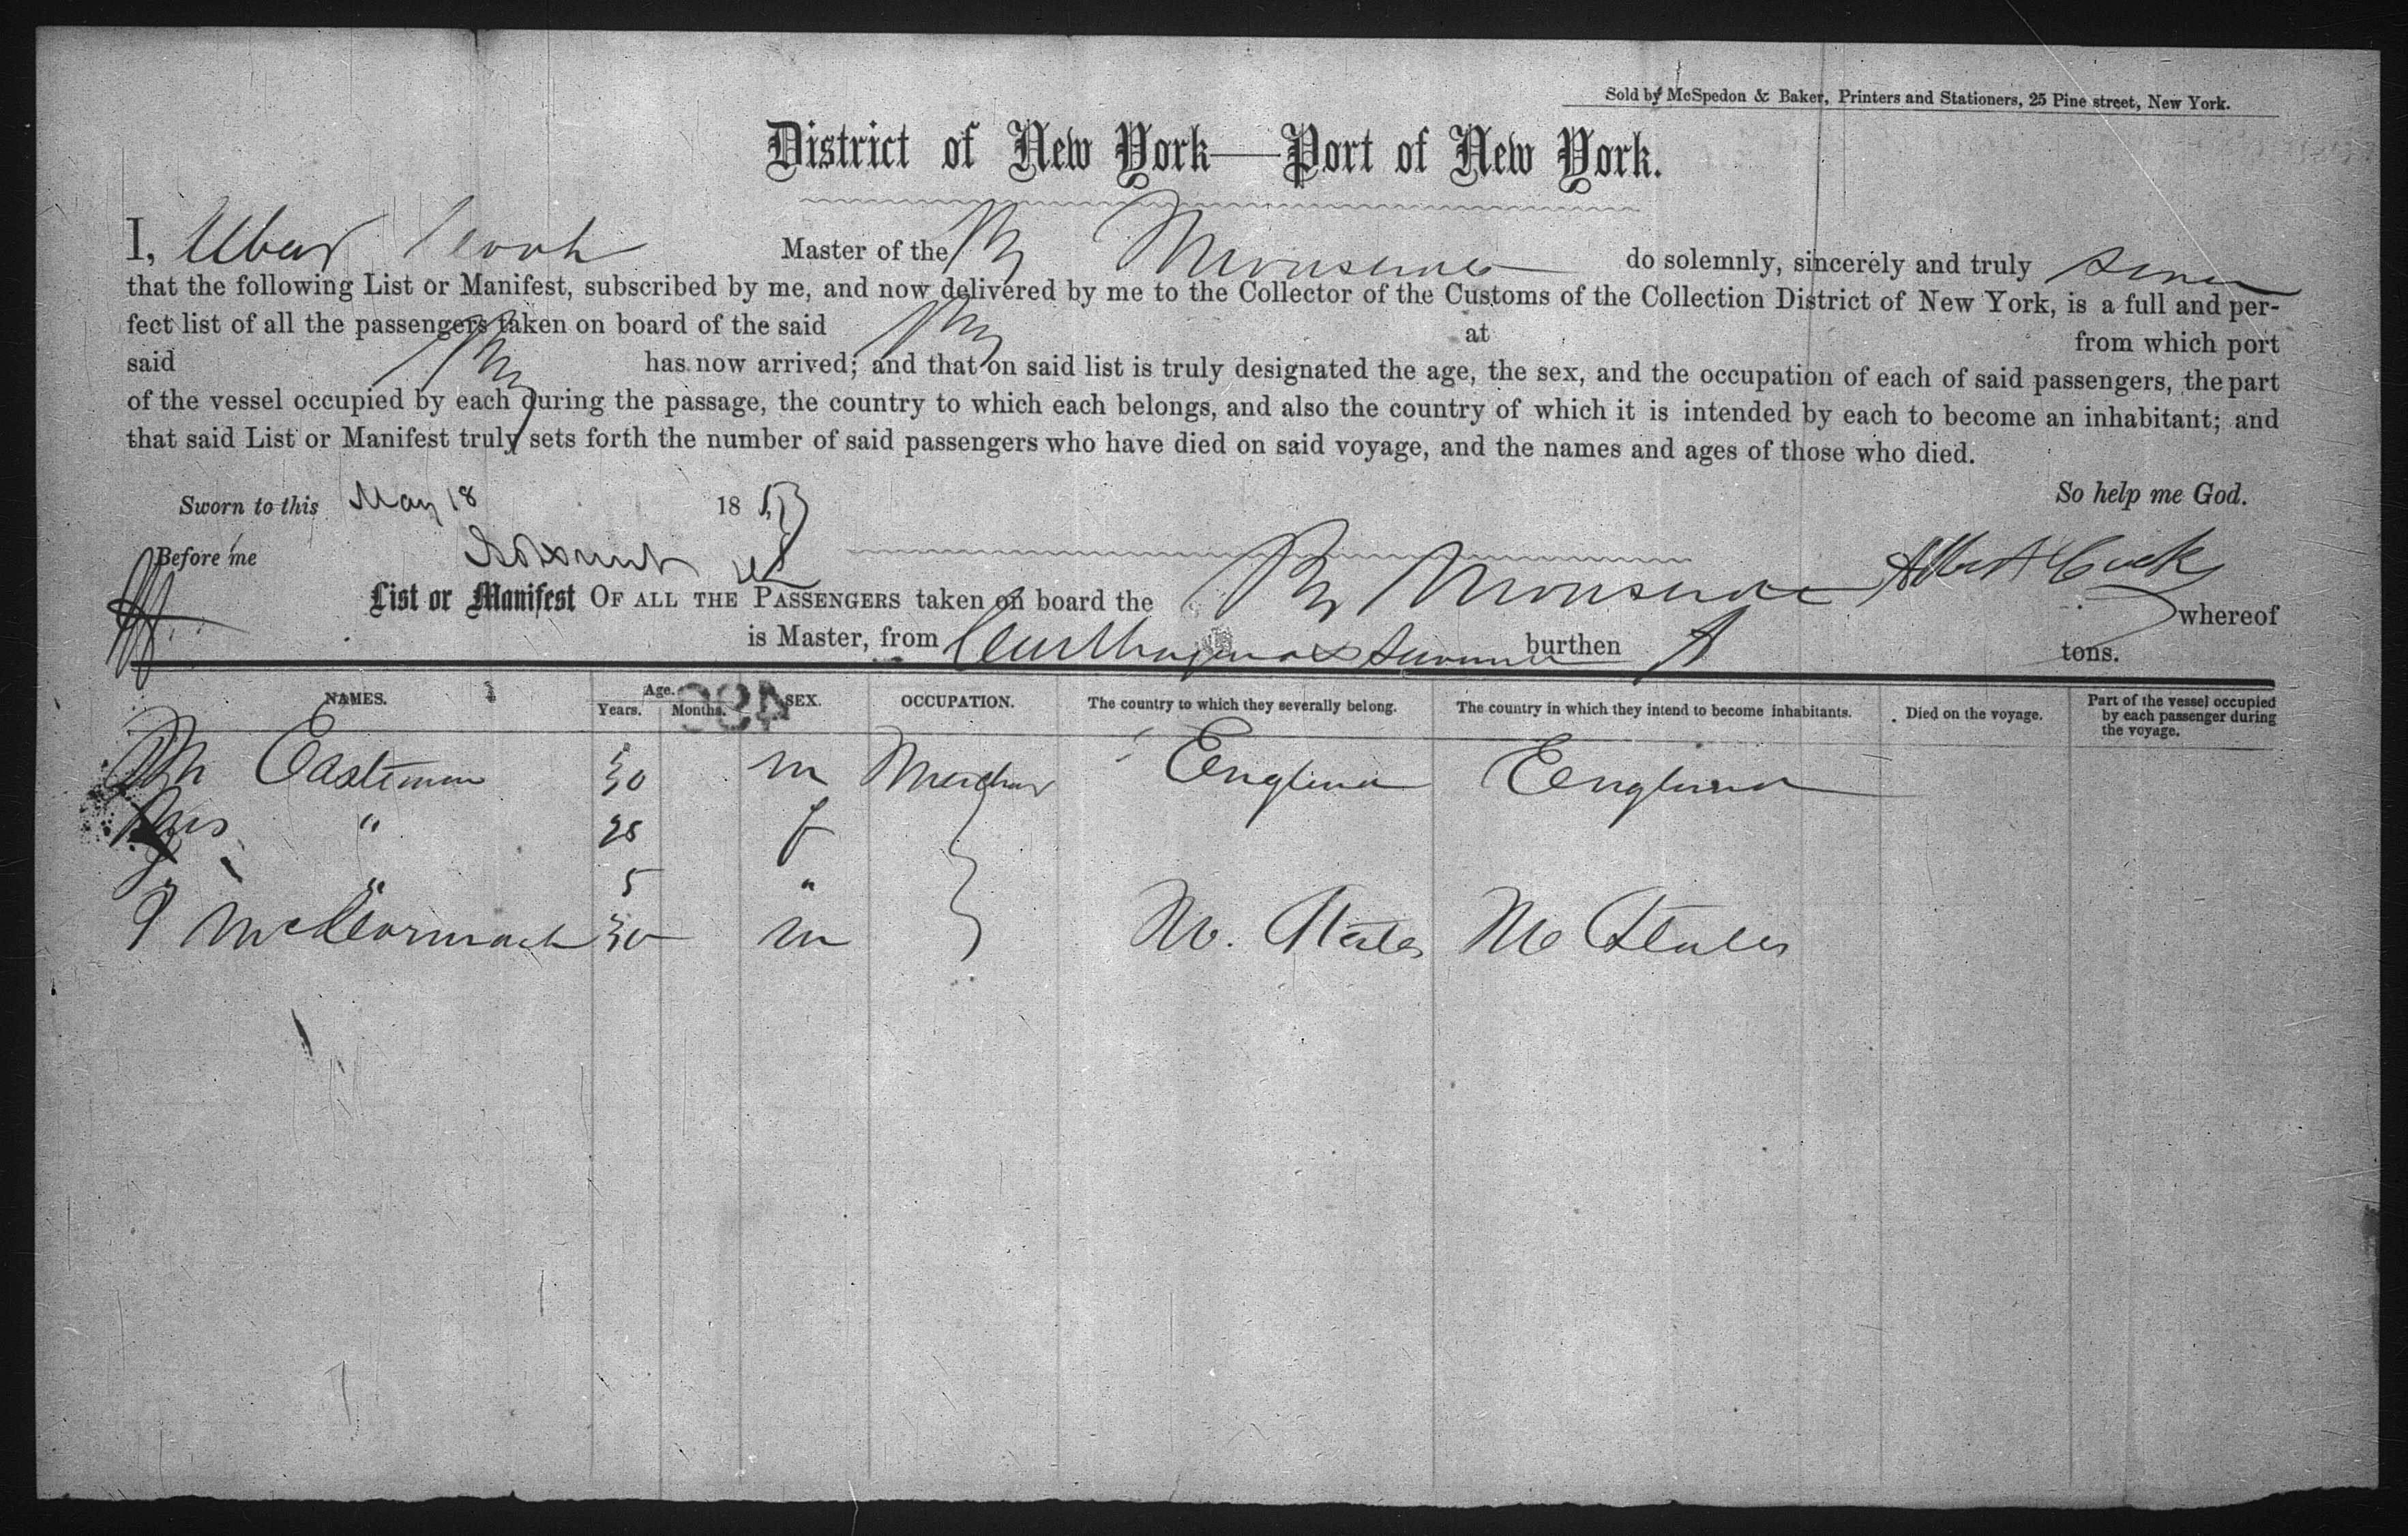 Sold by McSpedon & Baker, Printers and Stationers, 25 Pine street, New York.
District of New York—Port of New York.
I, Albert Cook Master of the Brig do solemnly, sincerely and truly swear
that the following List or Manifest, subscribed by me, and now delivered by me to the Collector of the Customs of the Collection District of New York, is a full and per-
fect list of all the passengers taken on board of the said Brig at
from which port
said Brig has now arrived; and that on said list is truly designated the age, the sex, and the occupation of each of said passengers, the part
of the vessel occupied by each during the passage, the country to which each belongs, and also the country of which it is intended by each to become an inhabitant; and
that said List or Manifest truly sets forth the number of said passengers who have died on said voyage, and the names and ages of those who died.
So help me God.
Sworn to this May 18 1853
Before me
Albert Cook
List or Manifest OF ALL THE PASSENGERS taken on board the Brig whereof
is Master, from burthen tons.
NAMES. Age. Years. Months. SEX. OCCUPATION. The country to which they severally belong. The country in which they intend to become inhabitants. Died on the voyage. Part of the vessel occupied by each passenger during the voyage.
484
Mr Eastman 30 m England England
Mrs " 25 f
" 5 "
McCormack 30 m U. States U States